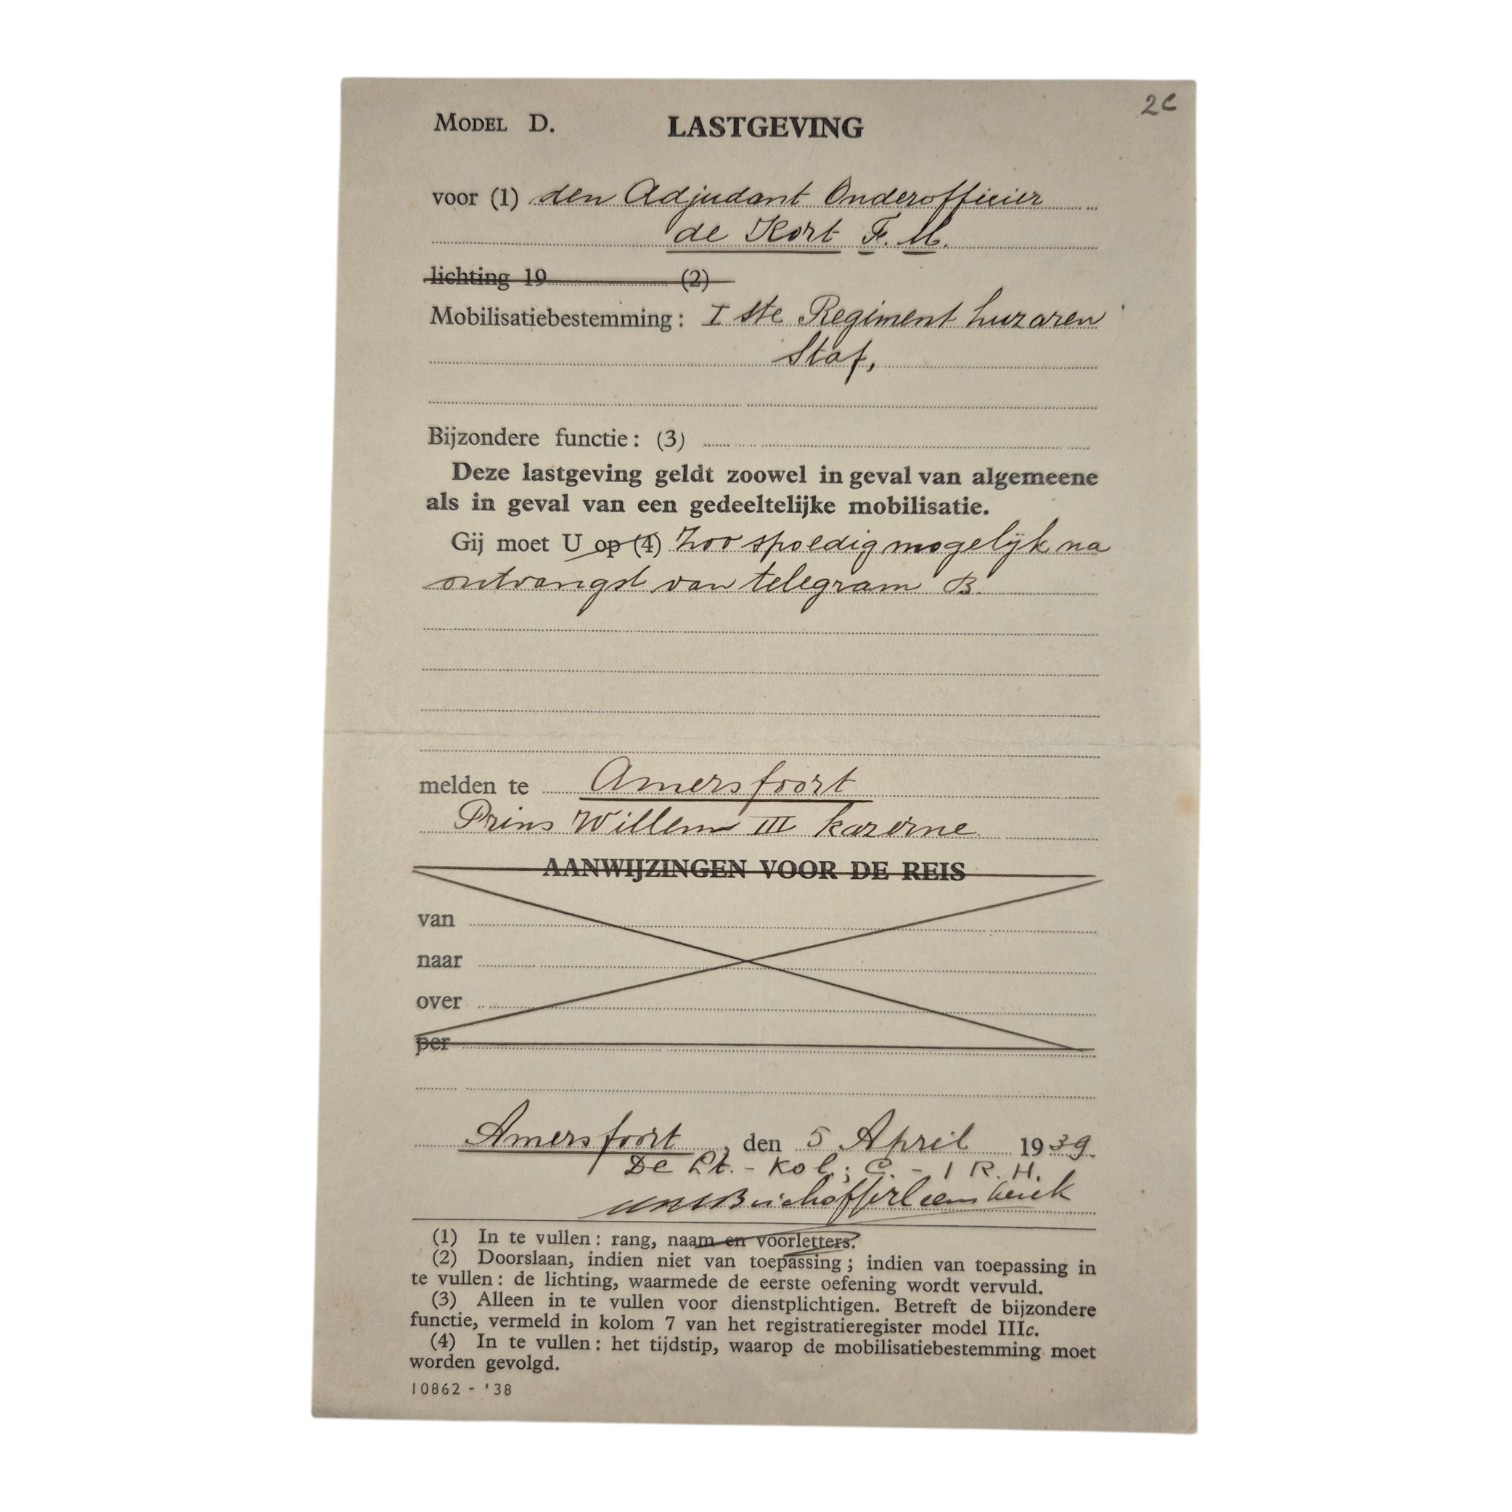 2c
MODEL D. LASTGEVING
voor (1) den Adjudant Onderofficier
de Kort F. M.
lichting 19 (2)
Mobilisatiebestemming: I ste Regiment huzaren
Staf,
Bijzondere functie: (3)
Deze lastgeving geldt zoowel in geval van algemeene
als in geval van een gedeeltelijke mobilisatie.
Gij moet U op (4) Zoo spoedig mogelijk na
ontvangst van telegram B.
melden te Amersfoort
Prins Willem III kazerne
AANWIJZINGEN VOOR DE REIS
van
naar
over
per
Amersfoort, den 5 April 1939.
De Lt.-Kol; C.-1 R.H.
(1) In te vullen: rang, naam en voorletters.
(2) Doorslaan, indien niet van toepassing; indien van toepassing in
te vullen: de lichting, waarmede de eerste oefening wordt vervuld.
(3) Alleen in te vullen voor dienstplichtigen. Betreft de bijzondere
functie, vermeld in kolom 7 van het registratieregister model IIIc.
(4) In te vullen: het tijdstip, waarop de mobilisatiebestemming moet
worden gevolgd.
10862 - '38